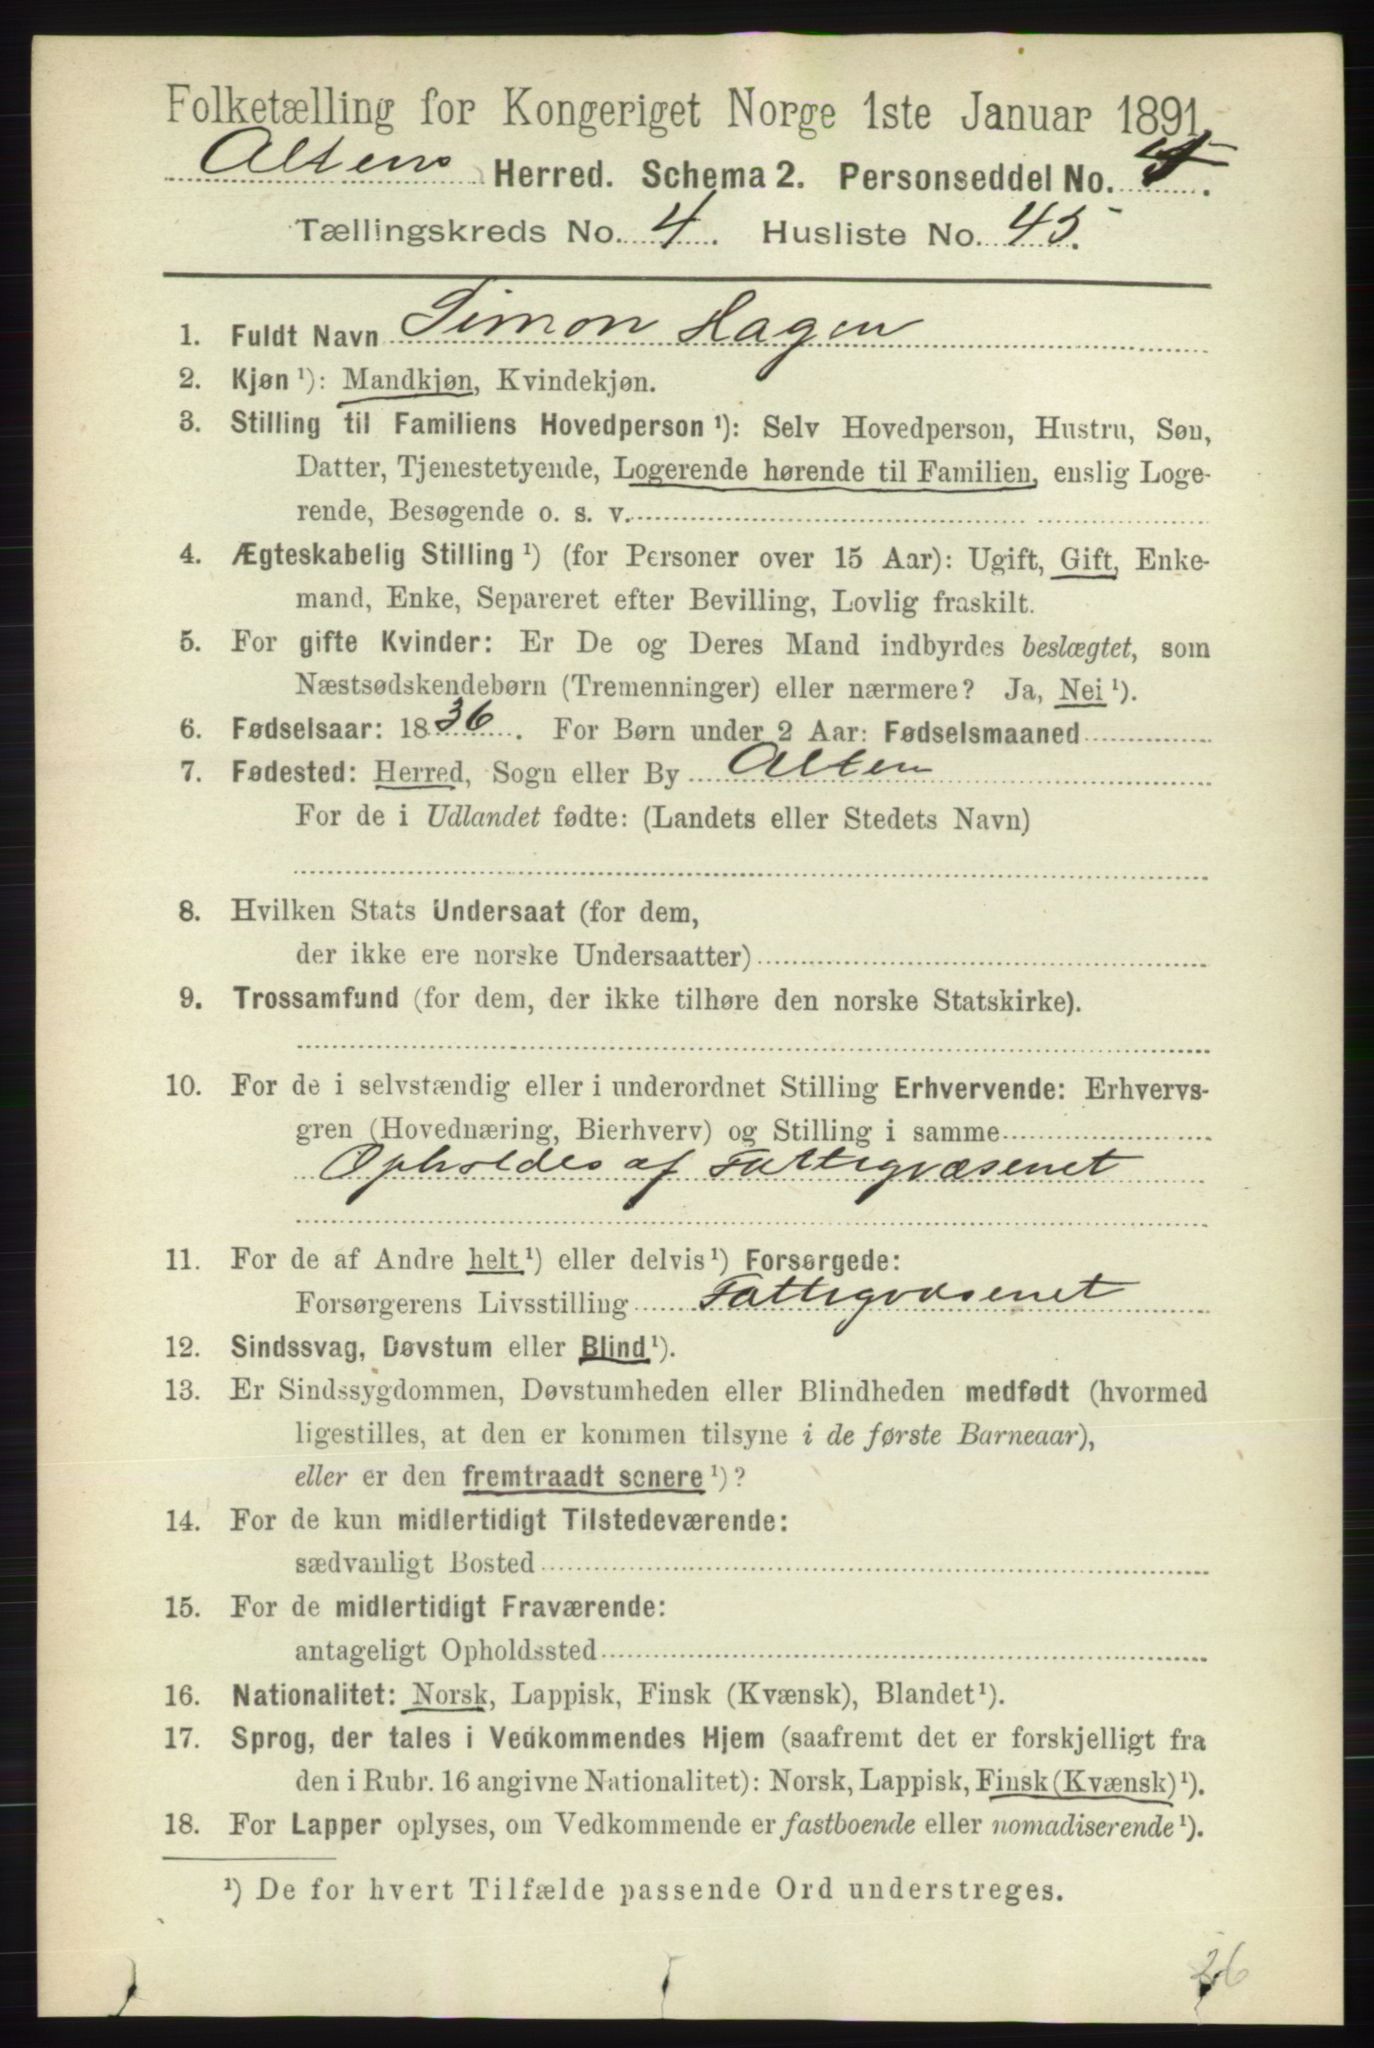 Folketælling for Kongeriget Norge 1ste Januar 1891.
Altens Herred. Schema 2. Personseddel No. 5.
Tællingskreds No. 4. Husliste No. 45.
1. Fuldt Navn Simon Hagen
2. Kjøn ¹): Mandkjøn, Kvindekjøn.
3. Stilling til Familiens Hovedperson ¹): Selv Hovedperson, Hustru, Søn,
Datter, Tjenestetyende, Logerende hørende til Familien, enslig Loge-
rende, Besøgende o. s. v.
4. Ægteskabelig Stilling ¹) (for Personer over 15 Aar): Ugift, Gift, Enke-
mand, Enke, Separeret efter Bevilling, Lovlig fraskilt.
5. For gifte Kvinder: Er De og Deres Mand indbyrdes beslægtet, som
Næstsødskendebørn (Tremenninger) eller nærmere? Ja, Nei ¹).
6. Fødselsaar: 1836. For Børn under 2 Aar: Fødselsmaaned
7. Fødested: Herred, Sogn eller By Alten
For de i Udlandet fødte: (Landets eller Stedets Navn)
8. Hvilken Stats Undersaat (for dem,
der ikke ere norske Undersaatter)
9. Trossamfund (for dem, der ikke tilhøre den norske Statskirke).
10. For de i selvstændig eller i underordnet Stilling Erhvervende: Erhvervs-
gren (Hovednæring, Bierhverv) og Stilling i samme
Opholdes af Fattigvæsenet
11. For de af Andre helt ¹) eller delvis ¹) Forsørgede:
Forsørgerens Livsstilling Fattigvæsenet
12. Sindssvag, Døvstum eller Blind ¹).
13. Er Sindssygdommen, Døvstumheden eller Blindheden medfødt (hvormed
ligestilles, at den er kommen tilsyne i de første Barneaar),
eller er den fremtraadt senere ¹)?
14. For de kun midlertidigt Tilstedeværende:
sædvanligt Bosted
15. For de midlertidigt Fraværende:
antageligt Opholdssted
16. Nationalitet: Norsk, Lappisk, Finsk (Kvænsk), Blandet ¹).
17. Sprog, der tales i Vedkommendes Hjem (saafremt det er forskjelligt fra
den i Rubr. 16 angivne Nationalitet): Norsk, Lappisk, Finsk (Kvænsk) ¹).
18. For Lapper oplyses, om Vedkommende er fastboende eller nomadiserende ¹).
¹) De for hvert Tilfælde passende Ord understreges.
26